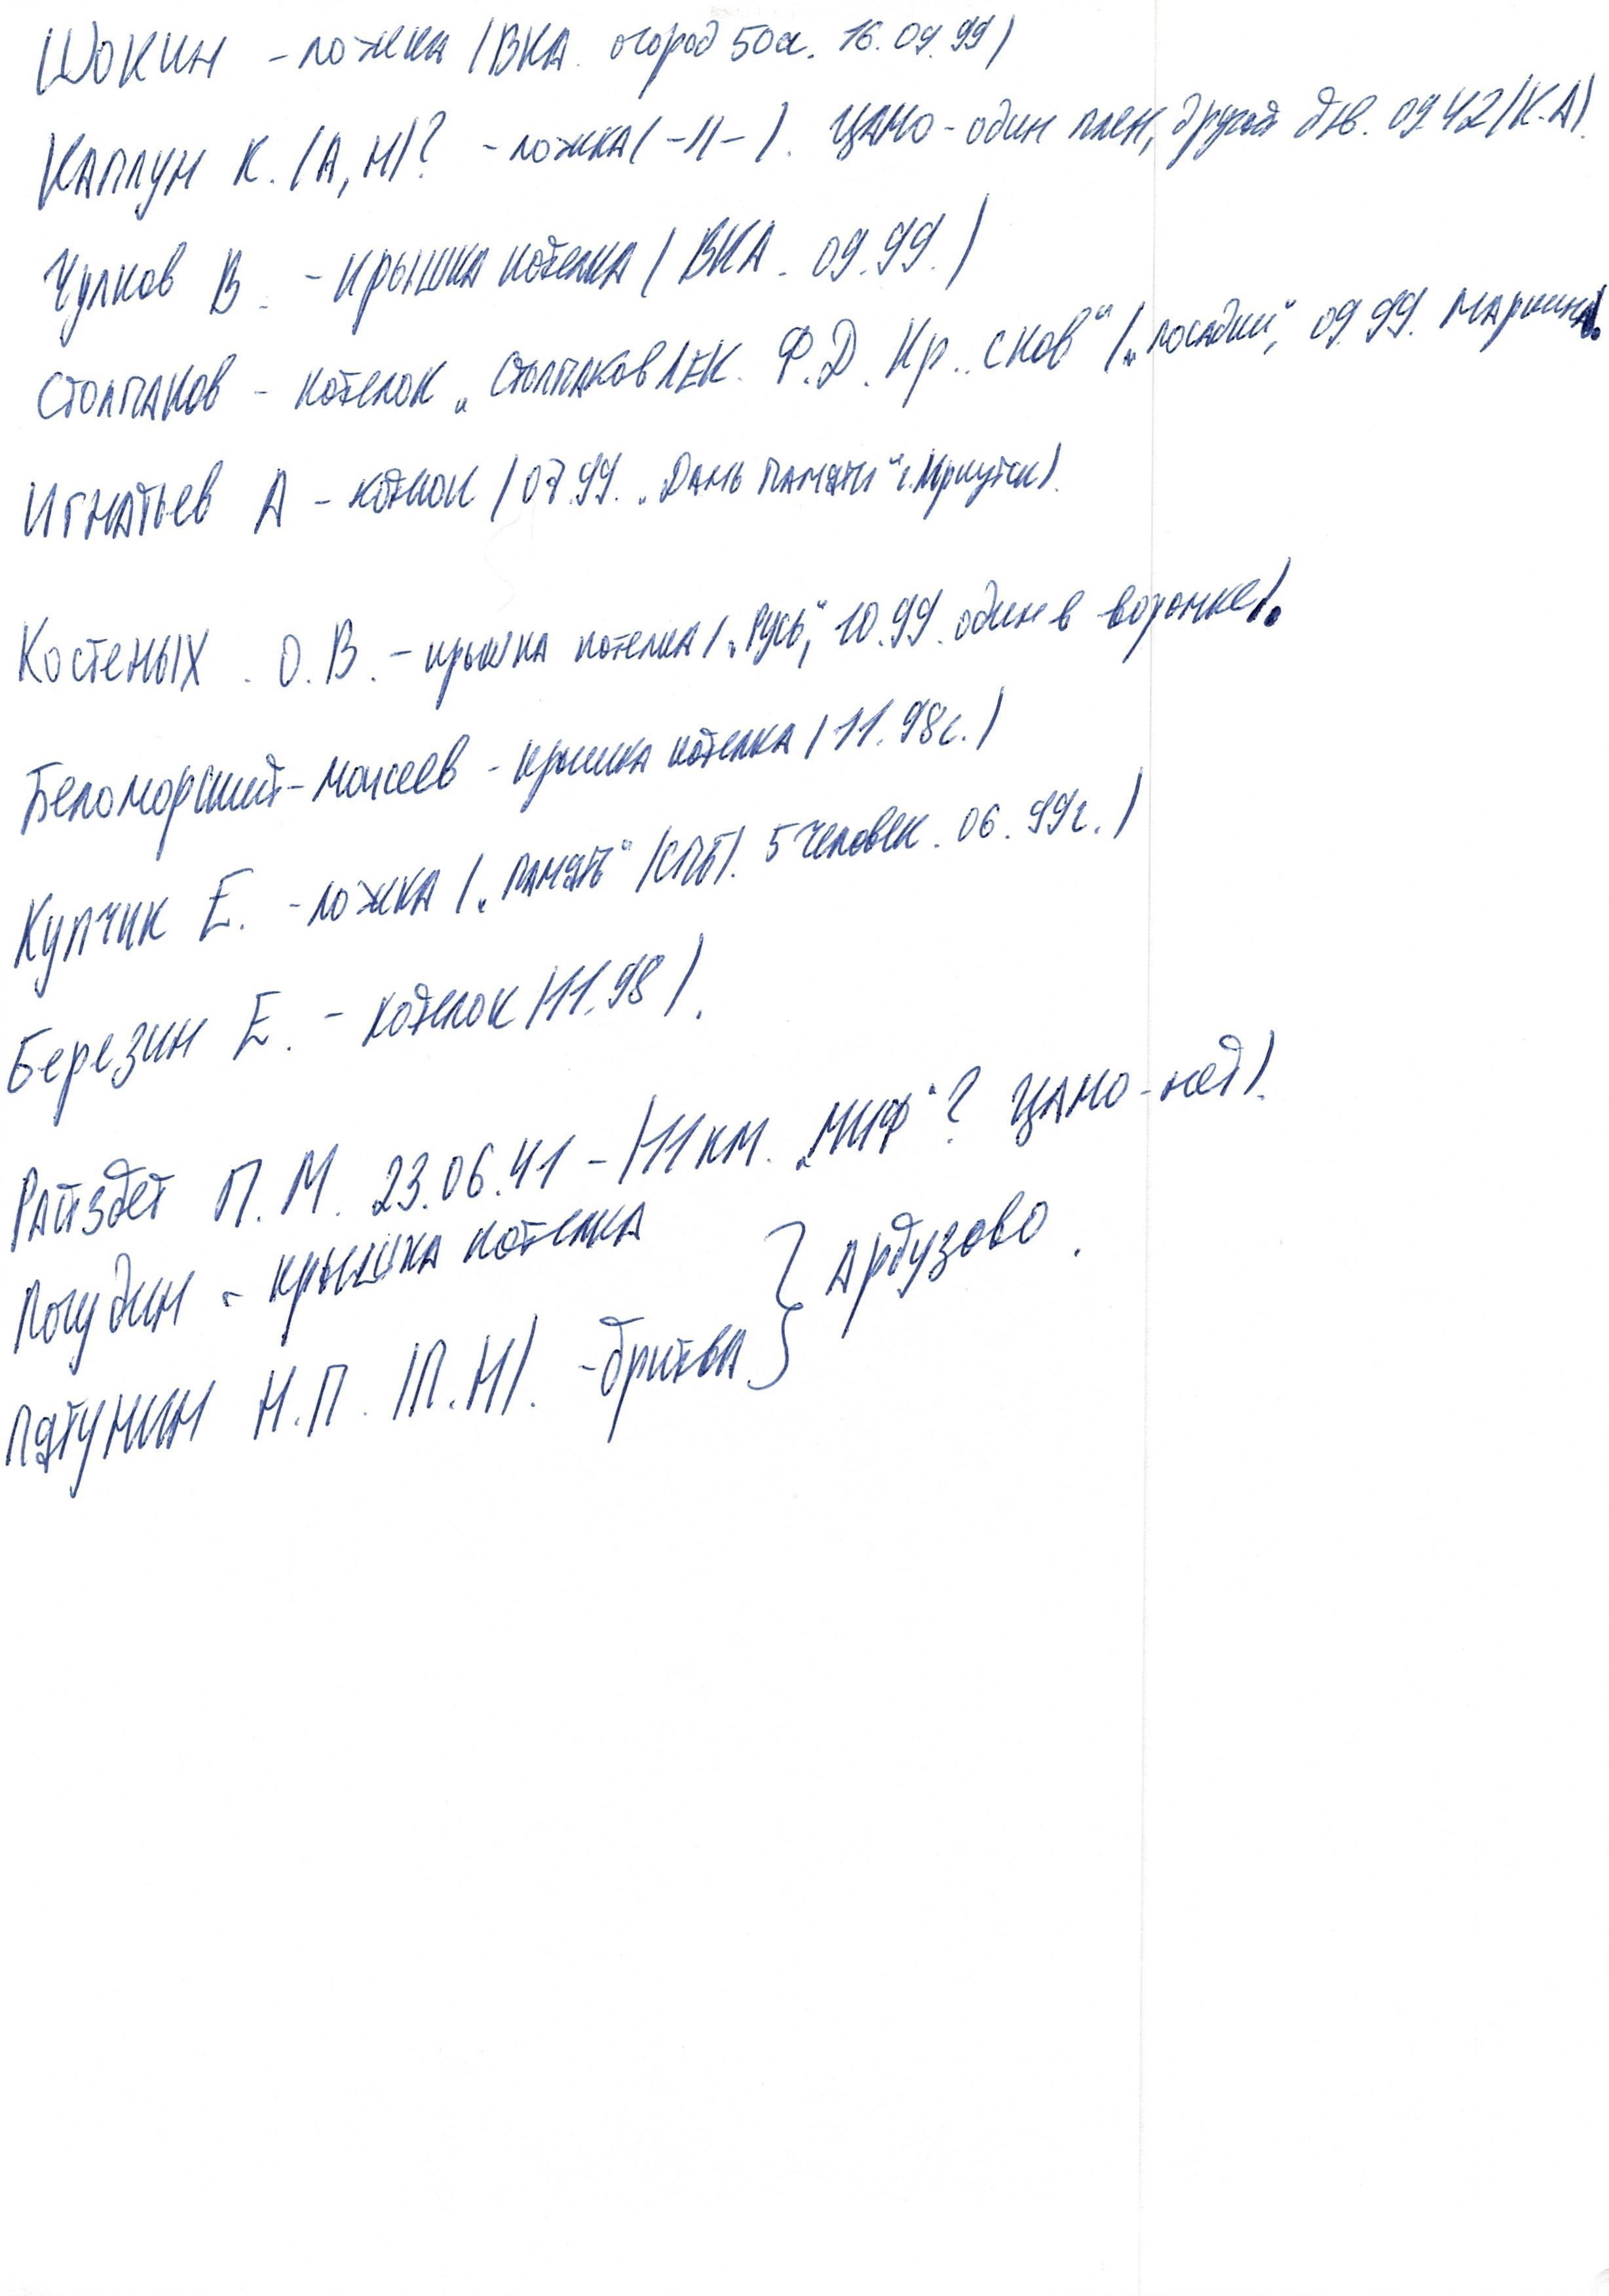 Шокин - ложка (ВКА. огород 50а. 16.09.99)
Каплун К. (А, Н)? - ложка ( -//- ). ЦАМО - один плен, другой 09.42 (К.А).
Чулков В. - крышка котелка ( ВКА. 09.99. )
Столпаков - котелок „Столпаков ЛЕК. Ф.Д. Кр..сков" („Посадник", 09.99.
Игнатьев А - котелок ( 07.99. „Дань памяти" г. Иркутск).
Костеных . О.В. - крышка котелка ( „Русь", 10.99. один в воронке).
Беломорский-Моисеев - крышка котелка ( 11.98г. )
Купчик Е. - ложка ( „Память" (СПб). 5 человек. 06.99г. )
Березин Е. - котелок (11.98 ).
Райзбет П.М. 23.06.41 - (11 км. „МИФ"? ЦАМО - нет).
Погудин - крышка котелка } Арбузово.
Пятунин Н.П. (П.Н). - бритва